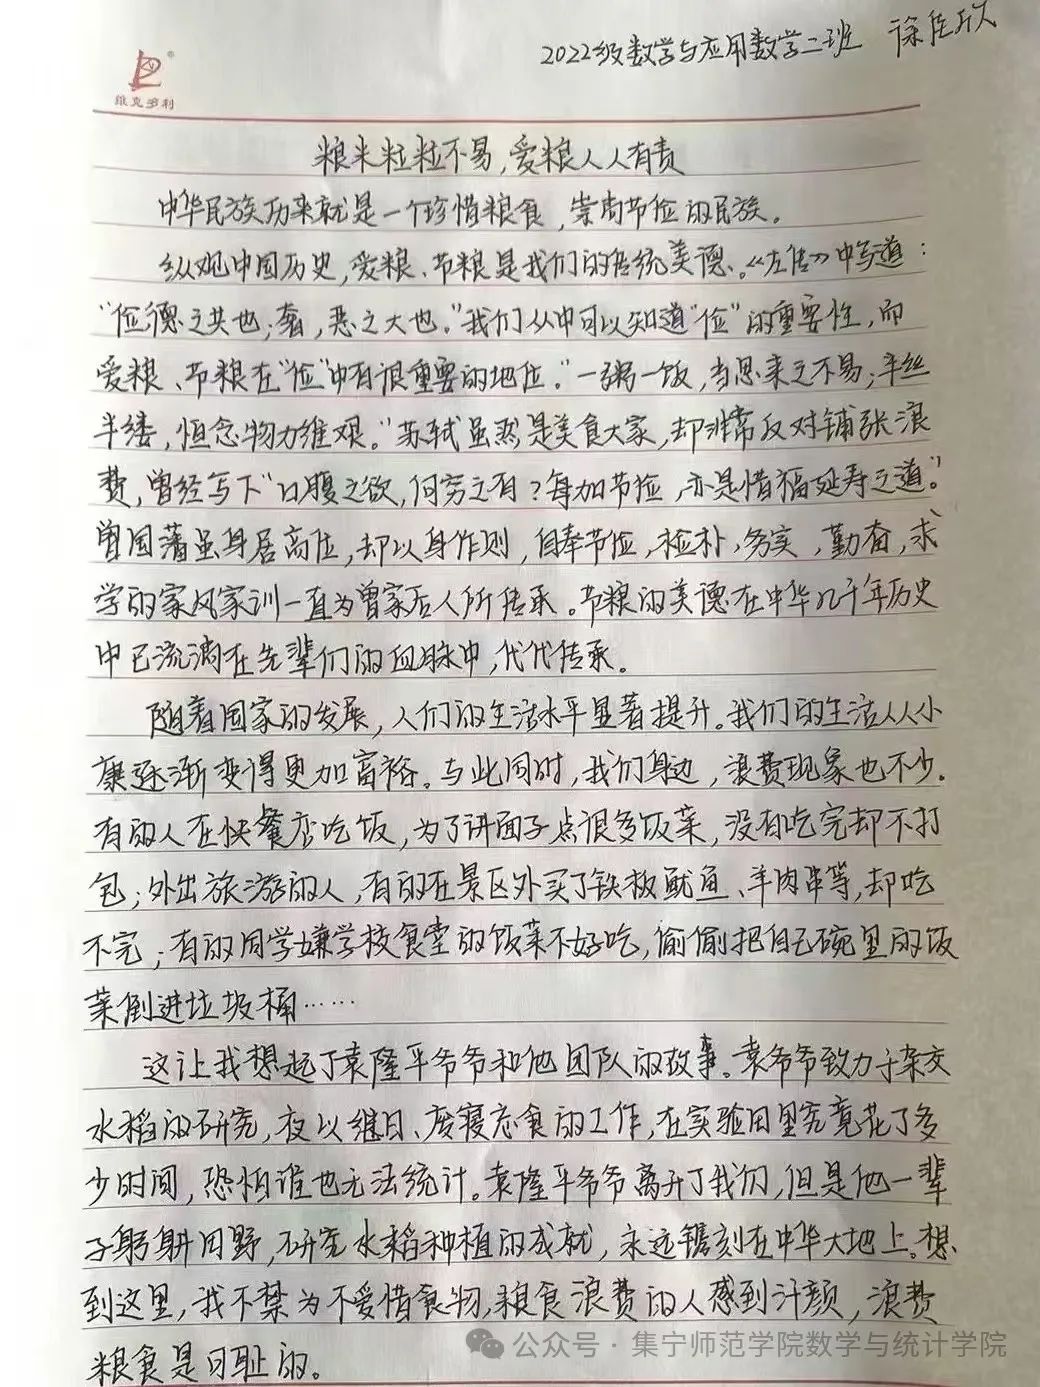 2022级数学与应用数学二班 徐佳欣
维克多利
粮米粒粒不易,爱粮人人有责
中华民族历来就是一个珍惜粮食,崇尚节俭的民族。
纵观中国历史,爱粮、节粮是我们的传统美德。《左传》中写道:
"俭,德之共也;奢,恶之大也。"我们从中可以知道"俭"的重要性,而
爱粮、节粮在"俭"中有很重要的地位。"一粥一饭,当思来之不易;半丝
半缕,恒念物力维艰。"苏轼虽然是美食大家,却非常反对铺张浪
费,曾经写下"口腹之欲,何穷之有?每加节俭,亦是惜福延寿之道。"
曾国藩虽身居高位,却以身作则,自奉节俭,检朴,务实,勤奋,求
学的家风家训一直为曾家后人所传承。节粮的美德在中华几千年历史
中已流淌在先辈们的血脉中,代代传承。
随着国家的发展,人们的生活水平显著提升。我们的生活从小
康逐渐变得更加富裕。与此同时,我们身边,浪费现象也不少。
有的人在快餐店吃饭,为了讲面子点很多饭菜,没有吃完却不打
包;外出旅游的人,有的在景区外买了铁板鱿鱼、羊肉串等,却吃
不完;有的同学嫌学校食堂的饭菜不好吃,偷偷把自己碗里的饭
菜倒进垃圾桶……
这让我想起了袁隆平爷爷和他团队的故事。袁爷爷致力于杂交
水稻的研究,夜以继日、废寝忘食的工作,在实验田里究竟花了多
少时间,恐怕谁也无法统计。袁隆平爷爷离开了我们,但是他一辈
子躬耕田野,研究水稻种植的成就,永远镌刻在中华大地上。想
到这里,我不禁为不爱惜食物,粮食浪费的人感到汗颜,浪费
粮食是可耻的。
公众号·集宁师范学院数学与统计学院